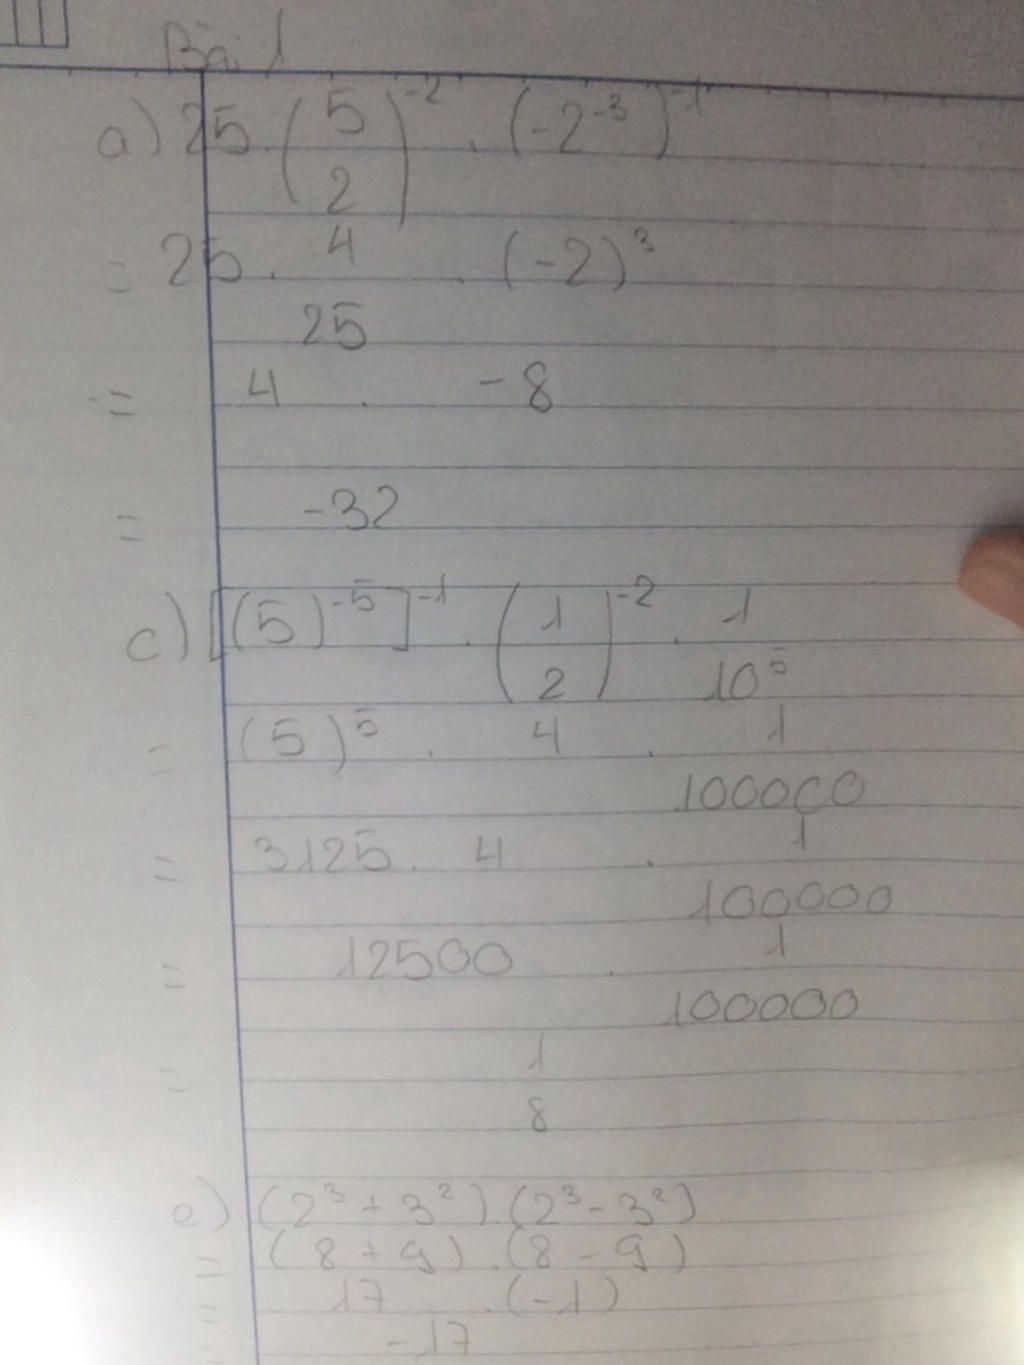 Bài 1
a) 25 . (5/2)⁻² . (-2⁻³)⁻¹
= 25 . 4/25 . (-2)³
= 4 . -8
= -32
c) [(5)⁻⁵]⁻¹ . (1/2)⁻² . 1/10⁵
= (5)⁵ . 4 . 1/100000
= 3125 . 4 . 1/100000
= 12500 . 1/100000
= 1/8
e) (2³ + 3²) . (2³ - 3²)
= (8 + 9) . (8 - 9)
= 17 . (-1)
= -17